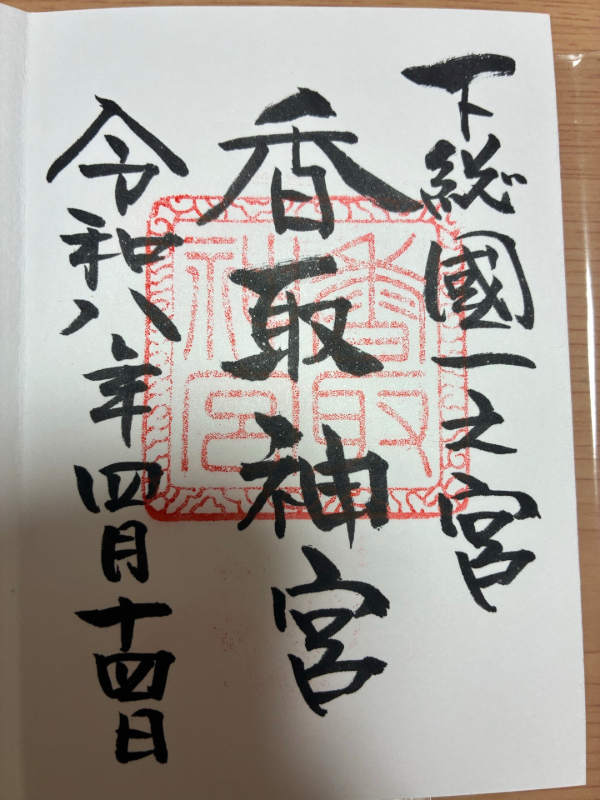 下総國一之宮
香取神宮
令和八年四月十四日
香取神宮